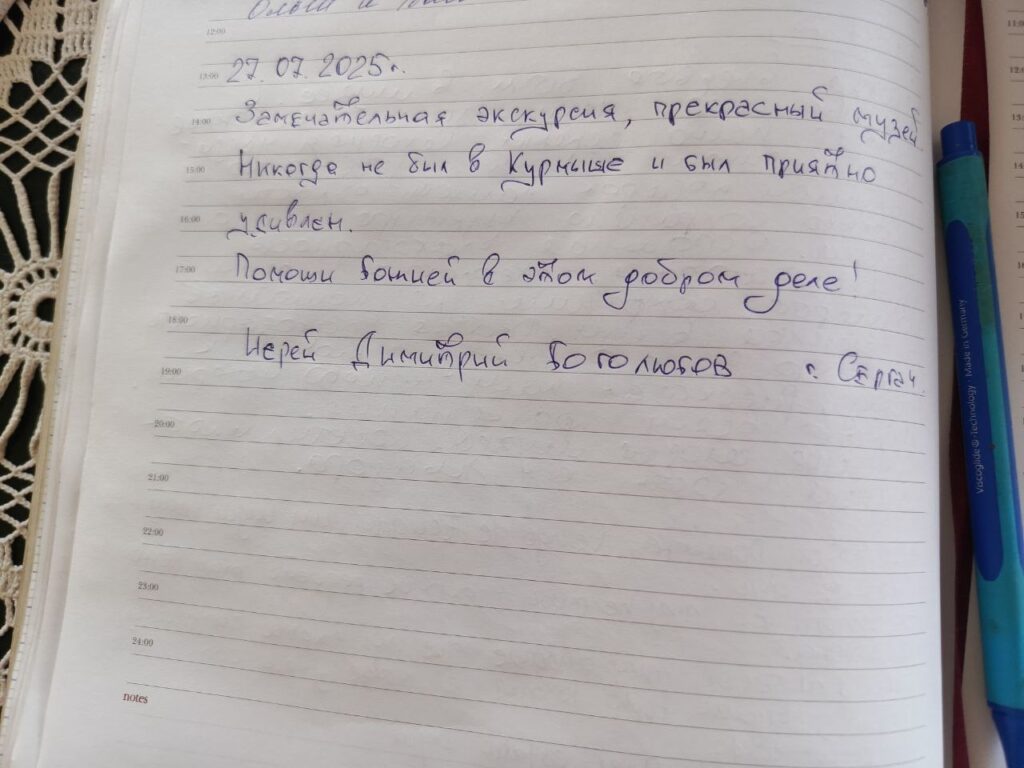 Ольги и
12:00
13:00 27.07.2025г.
14:00 Замечательная экскурсия, прекрасный музей.
15:00 Никогда не был в Курмыше и был приятно
16:00 удивлен.
17:00 Помощи Божией в этом добром деле!
18:00
Иерей Димитрий Боголюбов г. Сергач.
19:00
20:00
21:00
22:00
23:00
24:00
notes
Viscoglide® - Technology · Made in Germany
11:00
12:0
13:
14